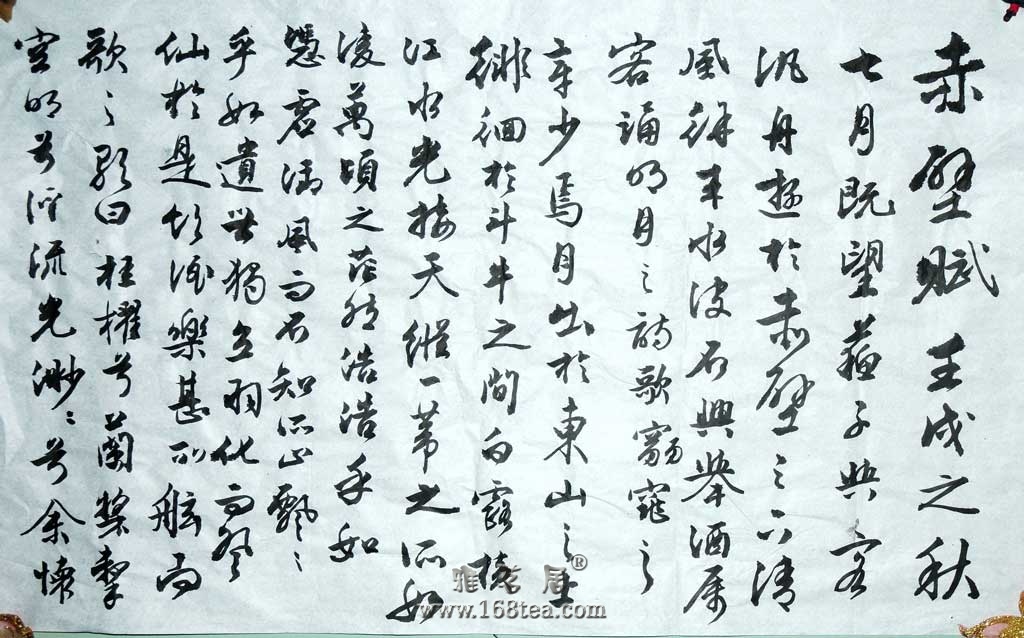 赤壁賦壬戌之秋
七月既望蘇子與客
汎舟遊於赤壁之下清
風徐来水波不興舉酒属
客誦明月之詩歌窈窕之
章少焉月出於東山之上
徘徊於斗牛之間白露横
江水光接天縱一葦之所如
凌萬頃之茫然浩浩乎如
憑虚御風而不知所止飄々
乎如遺世獨立羽化而登
仙於是飲酒樂甚扣舷而
歌之歌曰桂櫂兮蘭槳擊
空明兮泝流光渺々兮余懷
雅茗居®
www.168tea.com